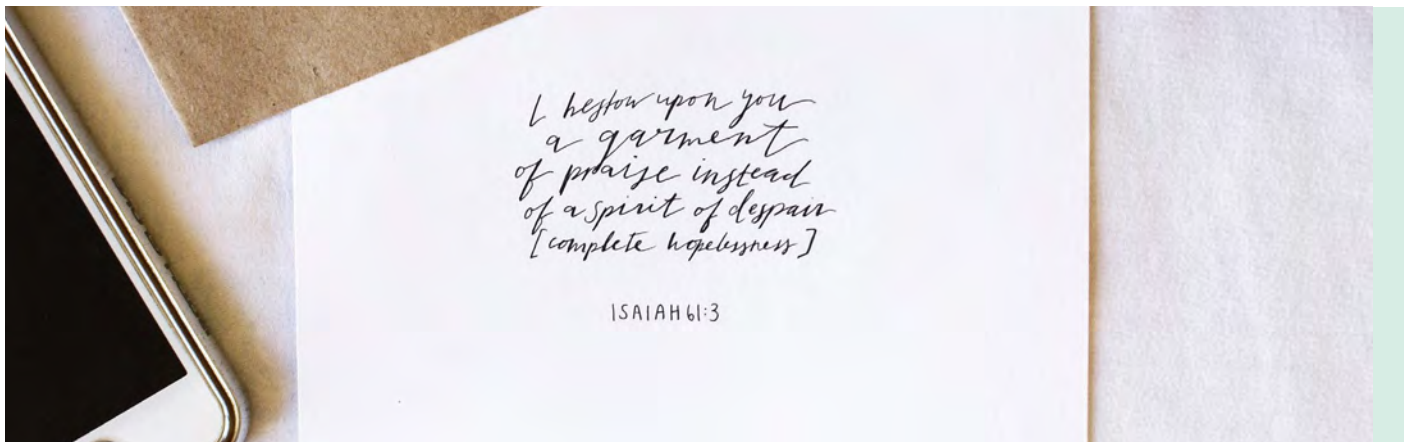 I bestow upon you
a garment
of praise instead
of a spirit of despair
[complete hopelessness]
ISAIAH 61:3